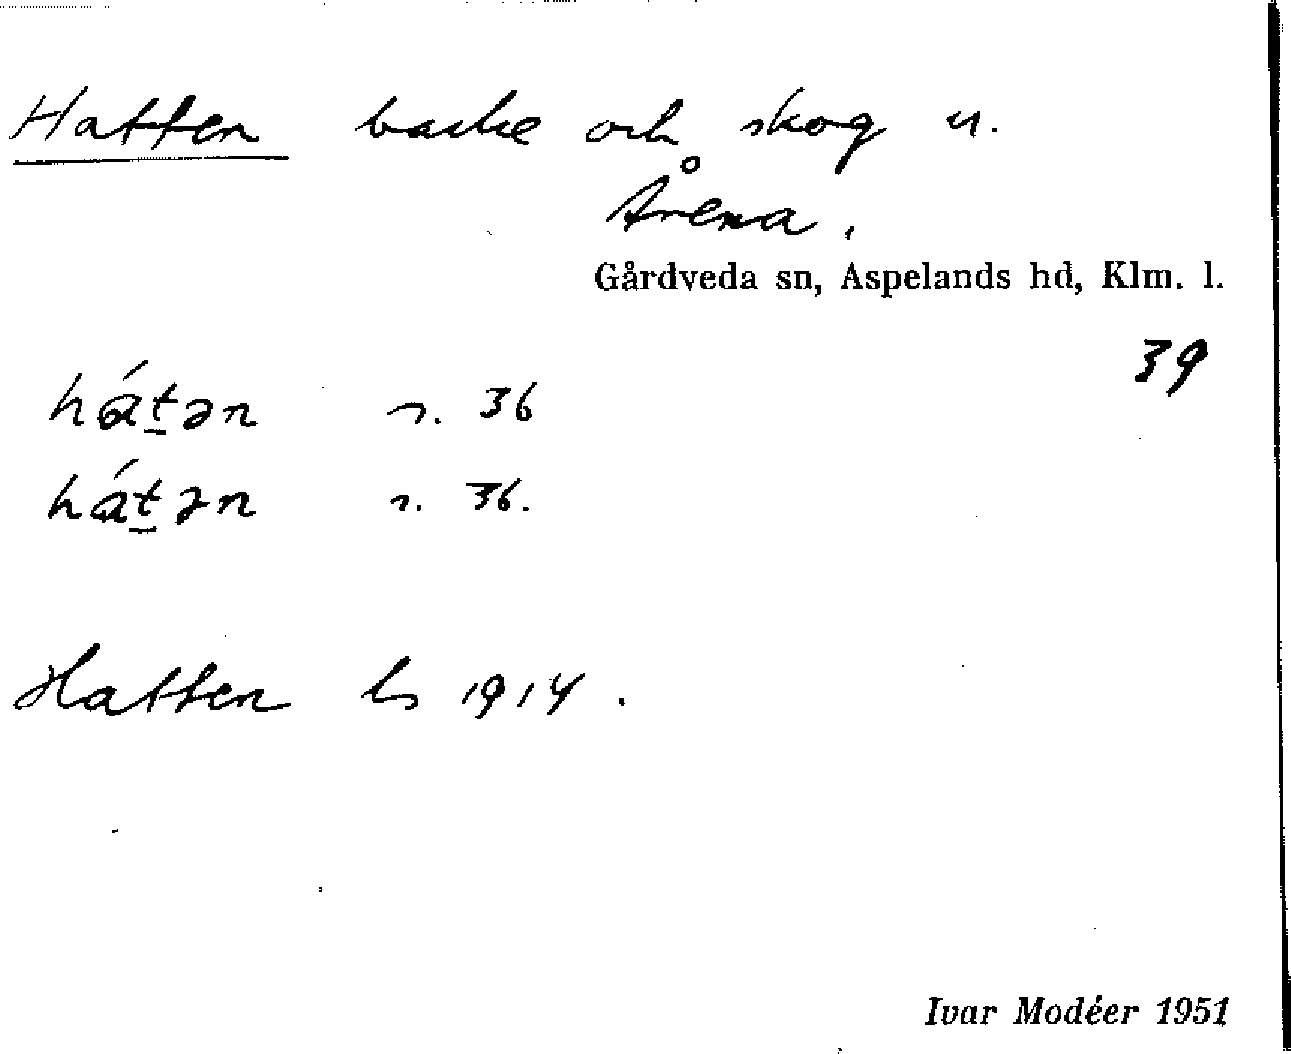 Hatten backe och skog u.
Årena.
Gårdveda sn, Aspelands hd, Klm. l.
39
hát̠ən r. 36
hát̠ən r. 36.
Hatten ls 1914.
Ivar Modéer 1951